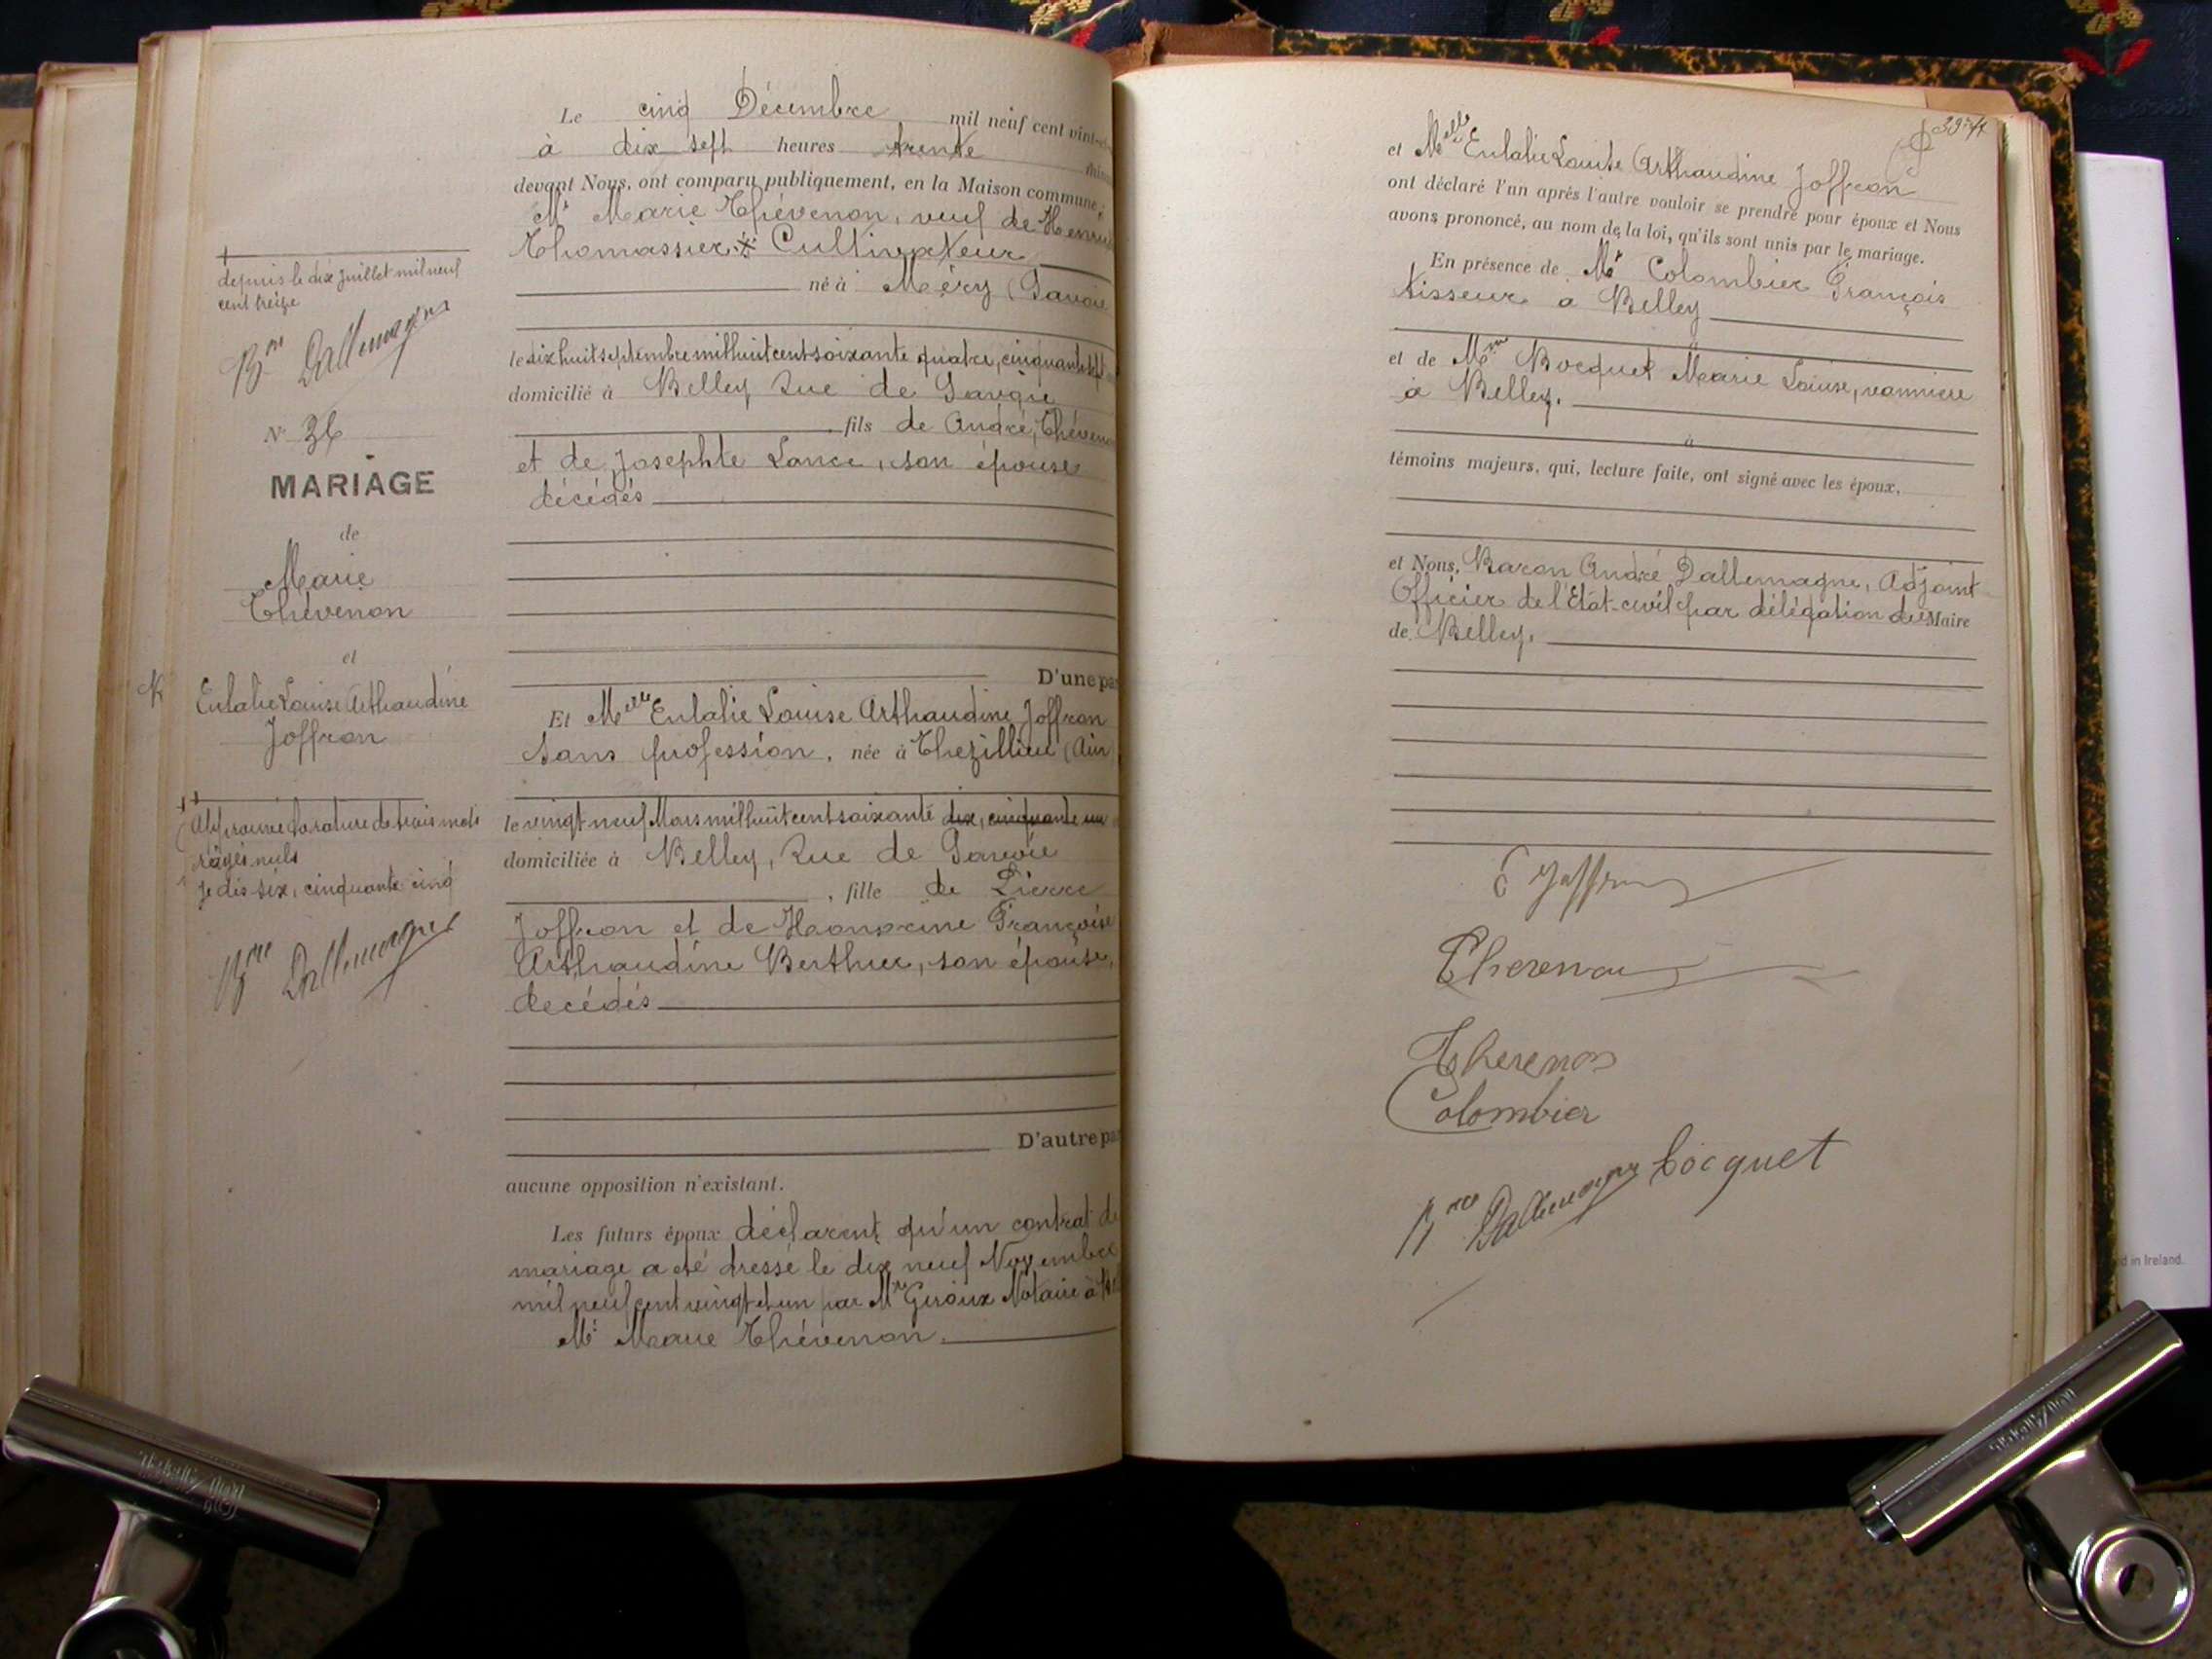 Le cinq Décembre mil neuf cent vint-et
à dix sept heures trente
devant Nous, ont comparu publiquement, en la Maison commune :
Mr Marie Thévenon, veuf de
Thomassier ⁜ Cultivateur
né à Méry (Savoie
le dix huit septembre mil huit cent soixante quatre, cinquante sept
domicilié à Belley Rue de Savoie
fils de André, Théven
et de Josephte Lance, son épouse
décédés
D'une pa
Et Melle Eulalie Louise Arthaudine Joffron
sans profession, née à Thezillieu (Ain
le vingt neuf Mars mil huit cent soixante dix, cinquante un
domiciliée à Belley, Rue de Savoie
, fille de Pierre
Joffron et de Françoise
Arthaudine Berthier, son épouse,
decédés
D'autre pa
aucune opposition n'existant.
Les futurs époux déclarent qu'un contrat de
mariage a été dressé le dix neuf Novembre
mil neuf cent vingt et un par Mre Giroux Notaire à
Mr Marie Thévenon.
depuis le dix juillet mil neuf
cent treize
Bon Dallemagne
No 36
MARIAGE
de
Marie
Thévenon
et
Eulalie Louise Arthaudine
Joffron
Approuvé la rature de trois mots
rayés nuls
je dis six, cinquante cinq
Bon Dallemagne
et Melle Eulalie Louise Arthaudine Joffron
ont déclaré l'un après l'autre vouloir se prendre pour époux et Nous
avons prononcé, au nom de la loi, qu'ils sont unis par le mariage.
En présence de Mr Colombier François
tisseur a Belley
et de Mme Bocquet Marie Louise, vannière
à Belley.
à
témoins majeurs, qui, lecture faite, ont signé avec les époux,
et Nous, Baron André Dallemagne, Adjoint
Officier de l'Etat-civil par délégation du Maire
de Belley.
E Joffron
Thevenon
Thevenon
Colombier
bocquet
Bon Dallemagne
d in Ireland.